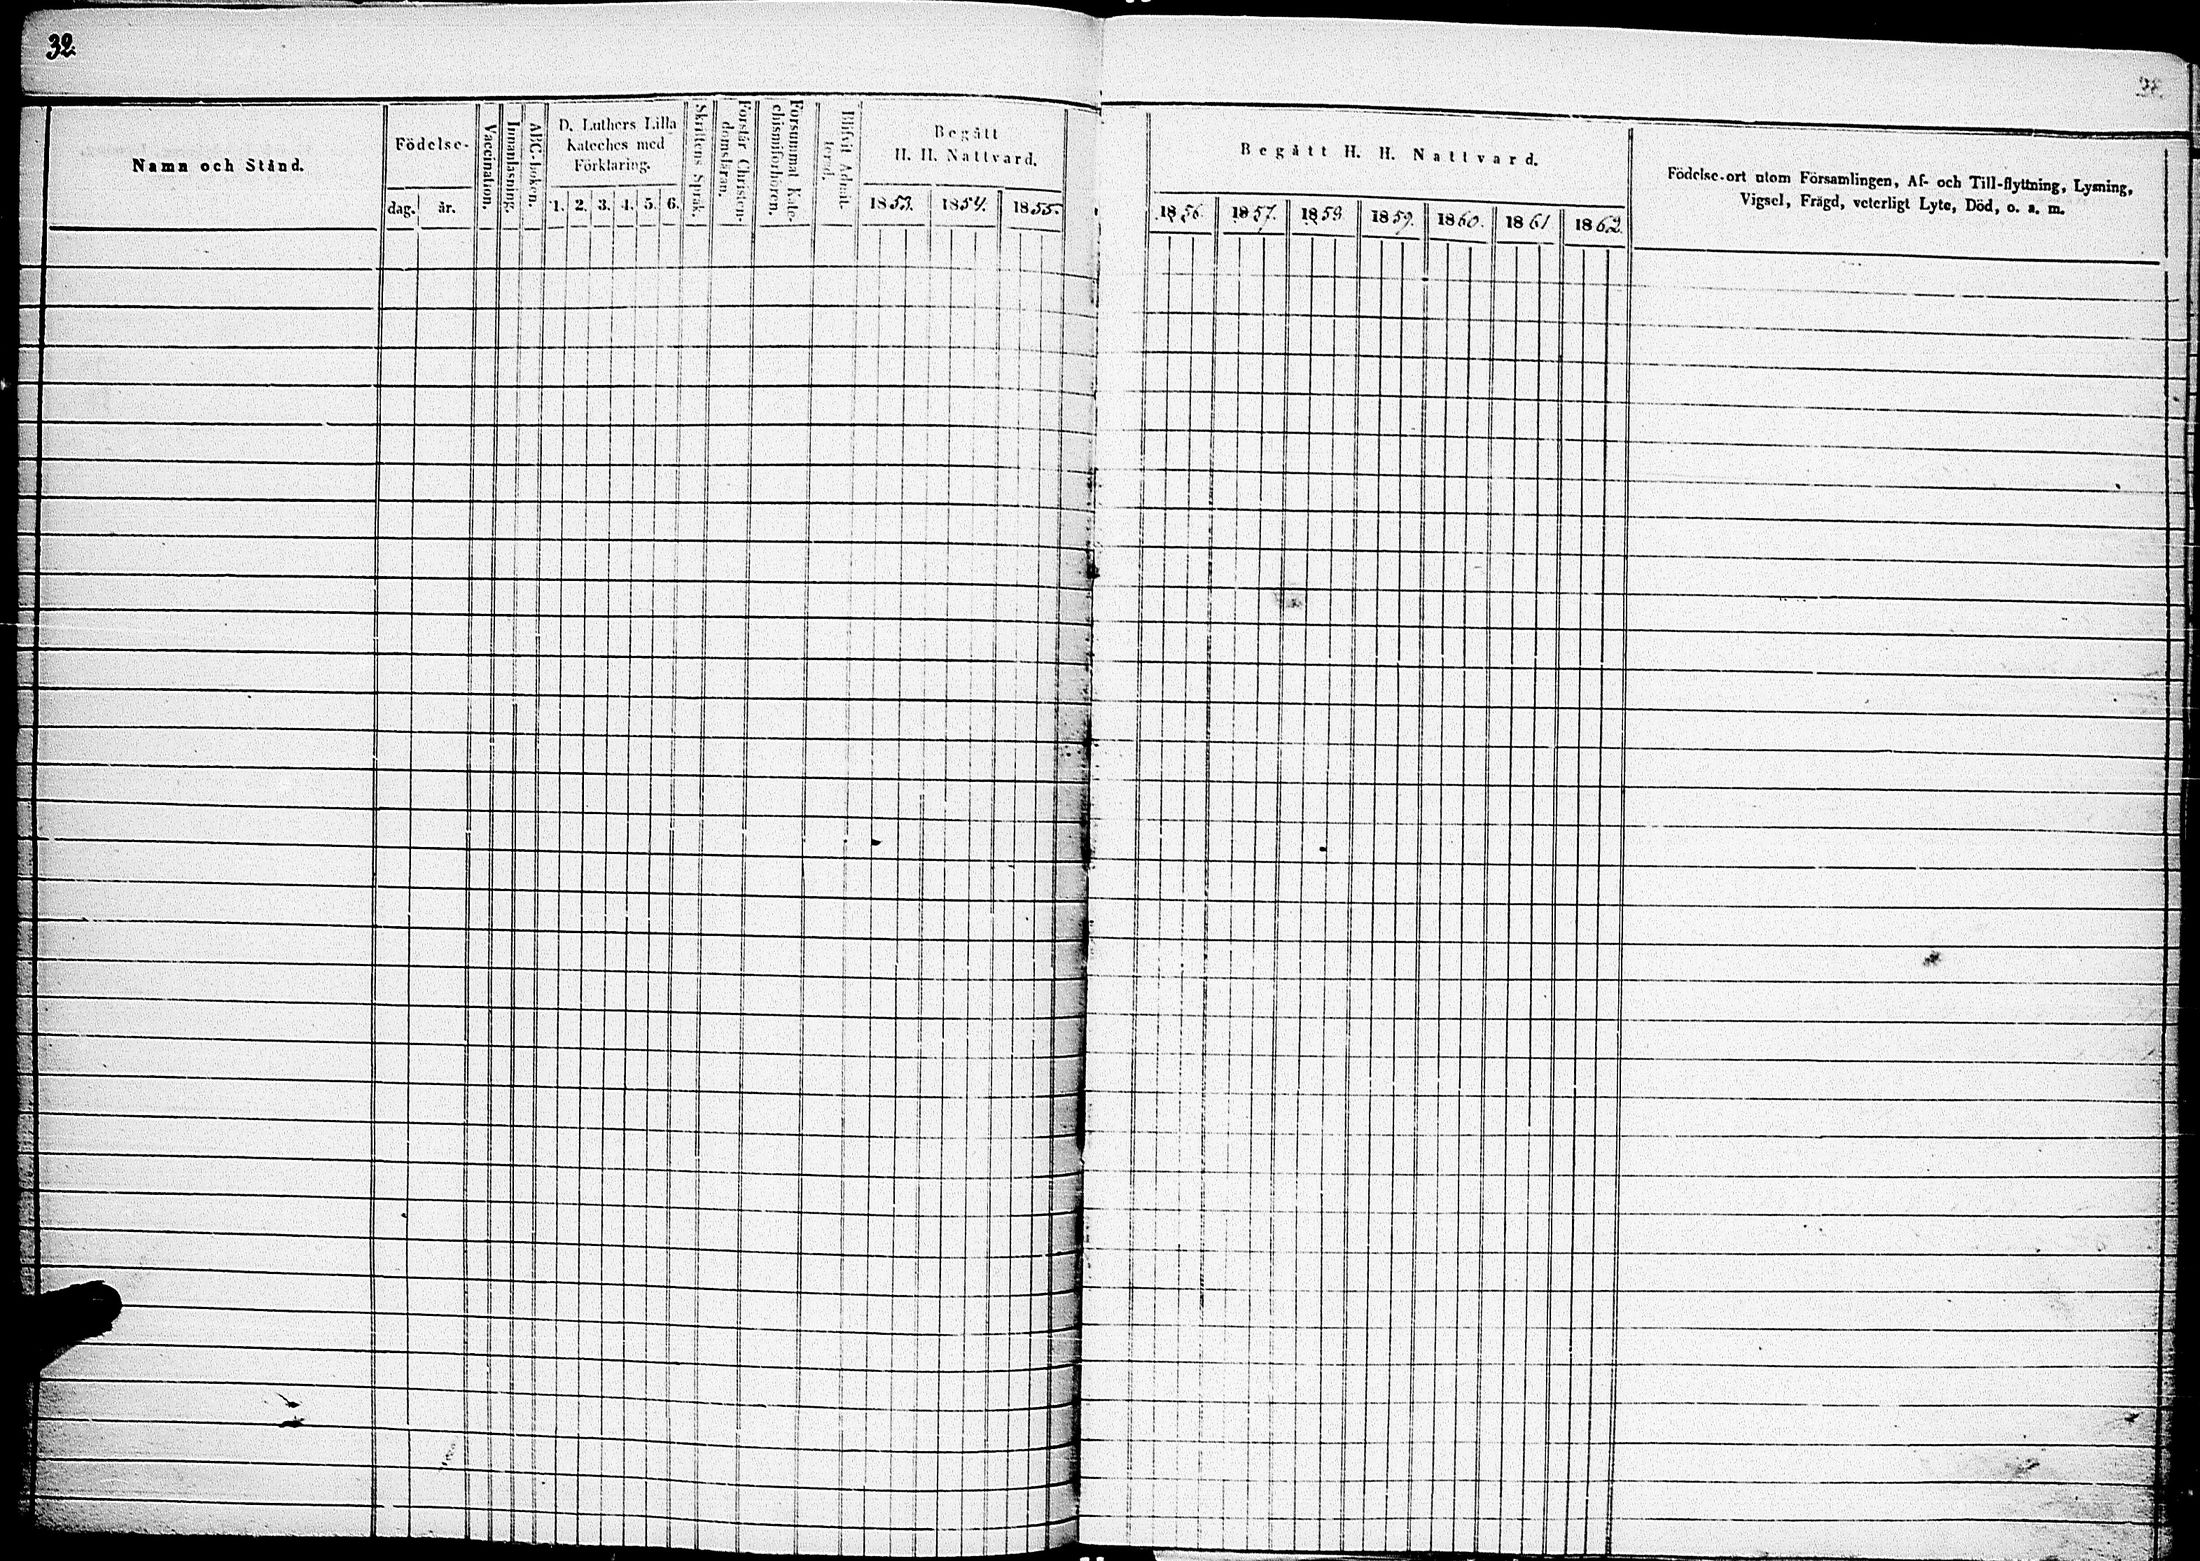 32.
Namn och Stånd.
Födelse-
dag. år.
Vaccination.
Innanläsning.
ABC-boken.
D. Luthers Lilla
Kateches med
Förklaring.
1. 2. 3. 4. 5. 6.
Skriftens Språk.
Förstår Christen-
domsläran.
Försummat Kate-
chismiförhören.
Blifvit Admit-
terad.
Begått
H. H. Nattvard.
1853. 1854. 1855.
Begått H. H. Nattvard.
1856. 1857. 1858 1859. 1860. 1861 1862.
Födelse-ort utom Församlingen, Af- och Till-flyttning, Lysning,
Vigsel, Frägd, veterligt Lyte, Död, o. s. m.